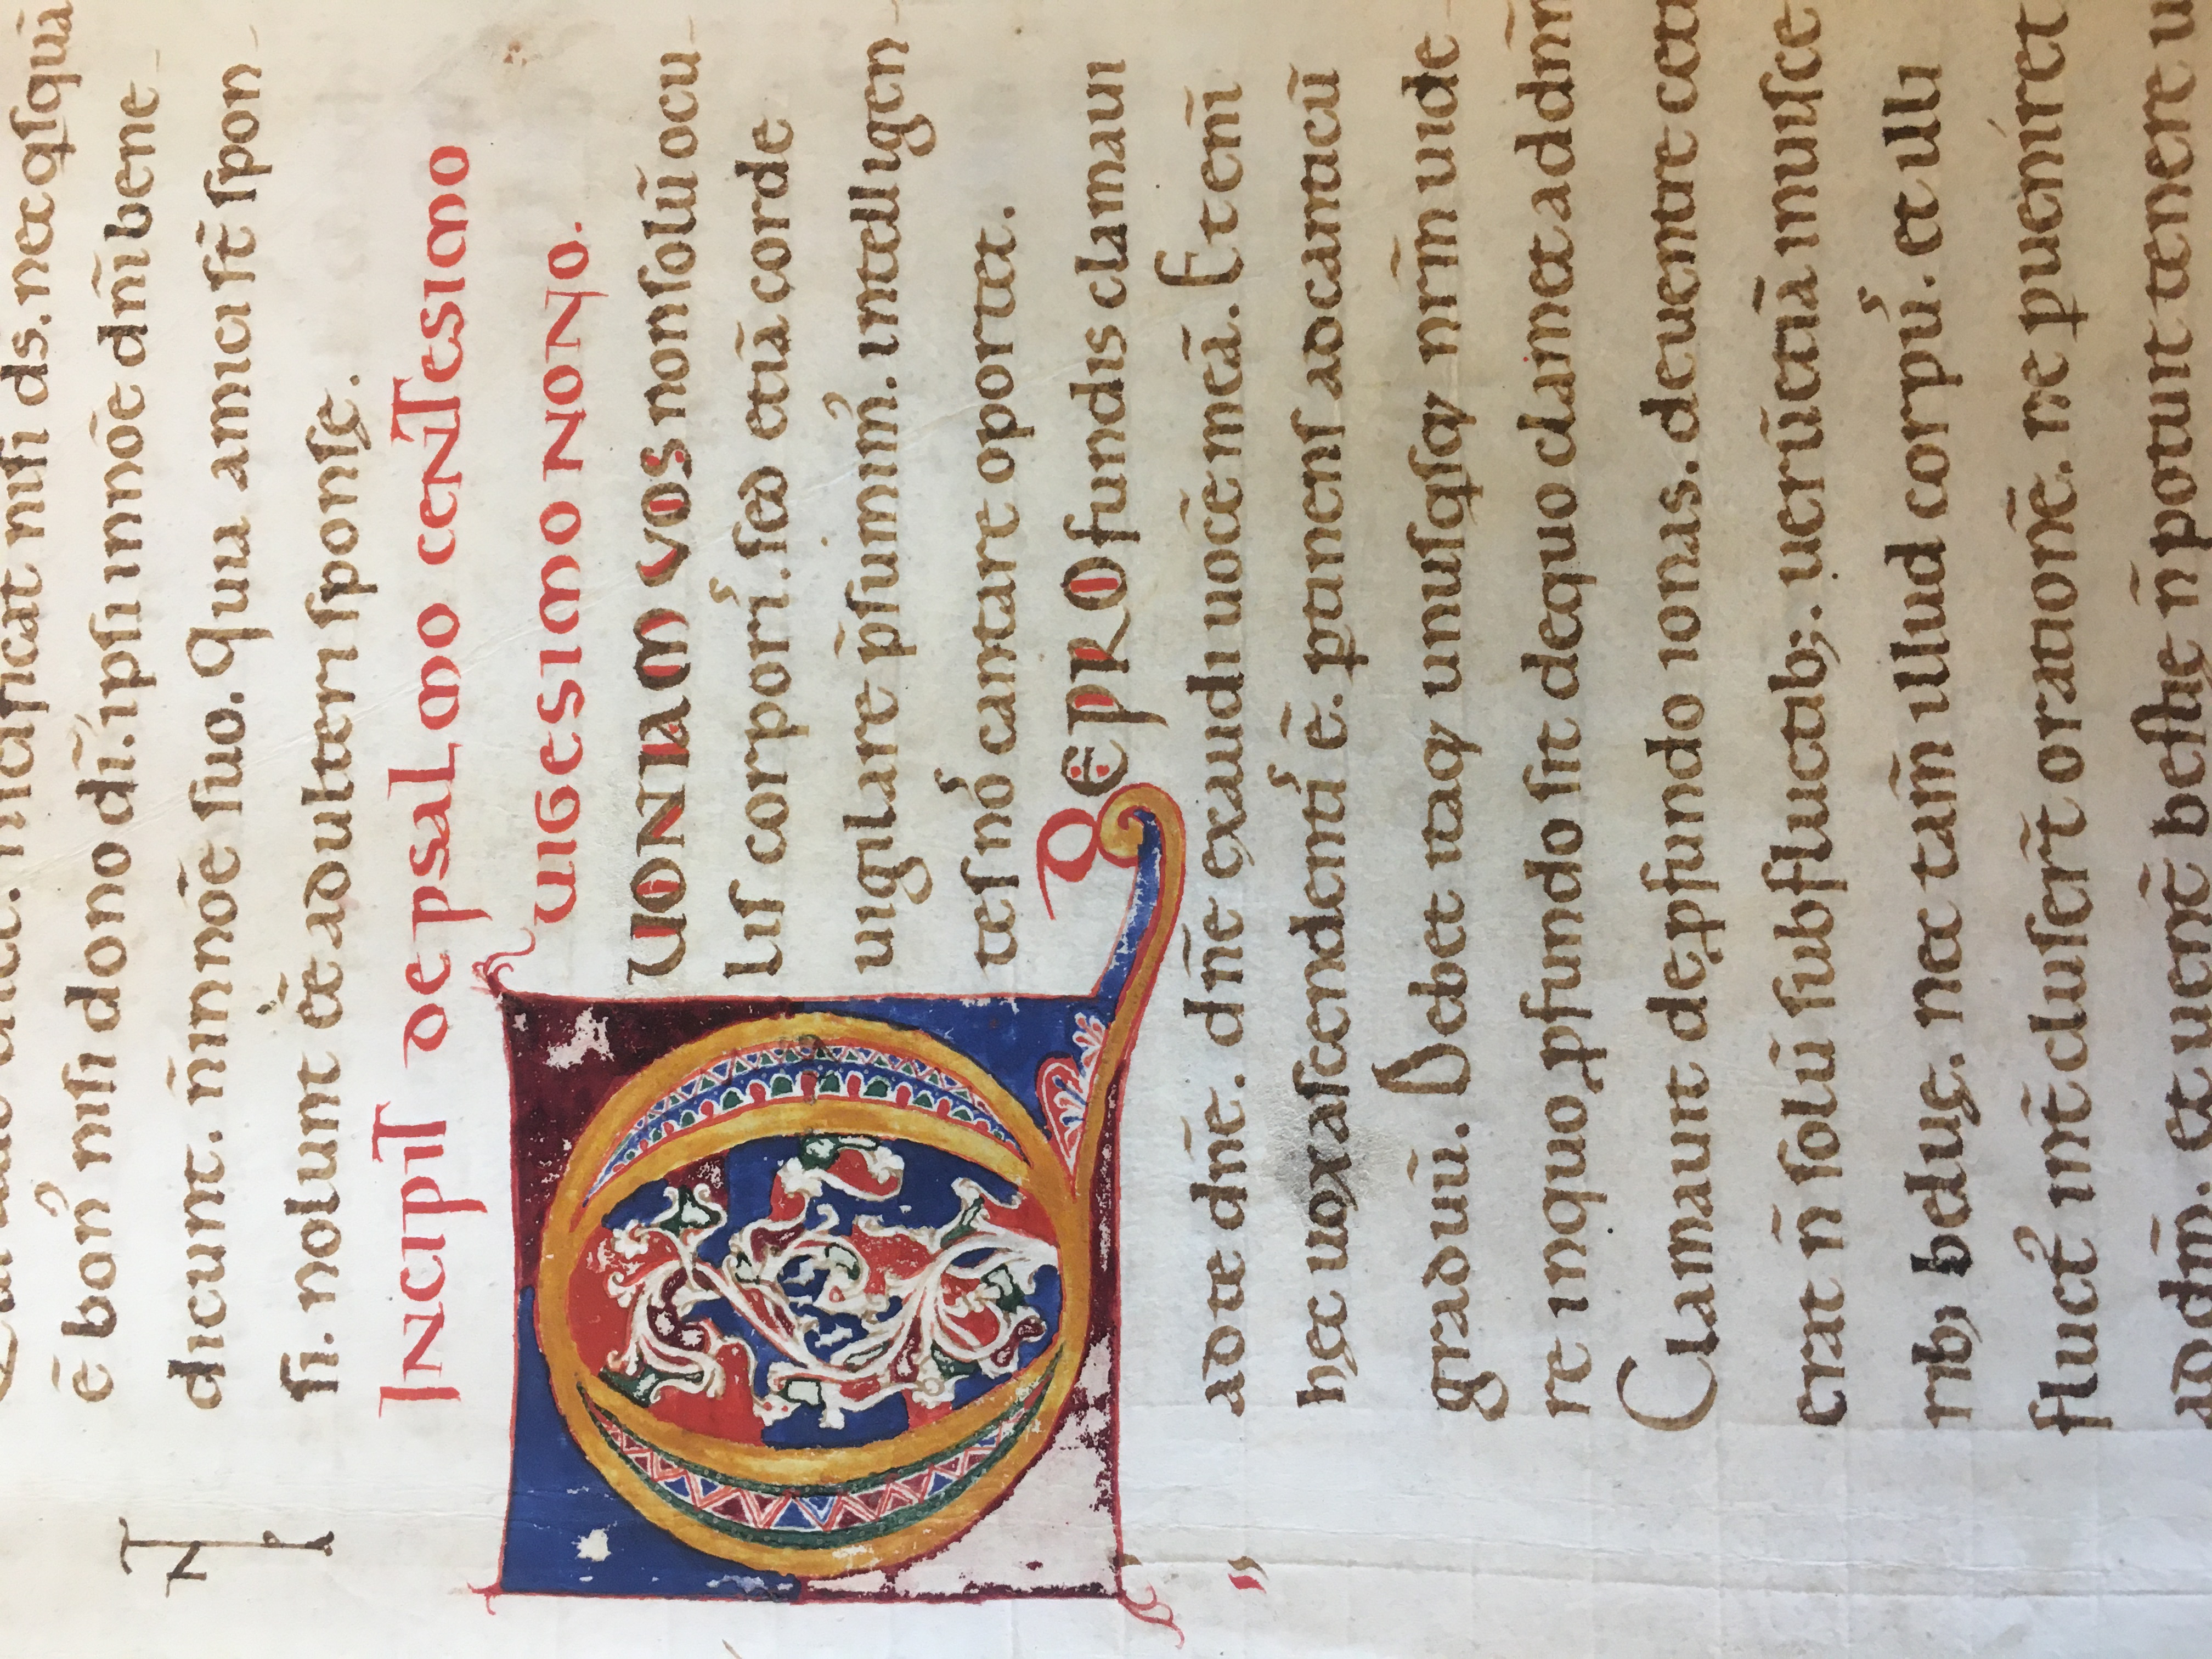 nidificat nisi ds. nec qꝉsquā
ē bonꝰ nisi dono dī. ipsi innōe dn̄i bene-
dicunt. n̄ innōe suo. amici st̄ spon-
si. nolunt ēē adulteri sponsę.
Incipit de psalmo centesimo
uigesimo nono.
QUONIAM VOS non solū ocu-
lis corporiˢ. sed etiā corde
uigilare p̄sumimꝰ. intelligen-
tes noˢ cantare oportet.
DE PROfundis clamaui
ad te dn̄e. dn̄e exaudi uocē meā. Et eni̅
hęc uox ascendentiˢ ē. ꝑtinens ad canticū
graduū. Debet itaqꝫ unusqꝉsqꝫ nr̄m uide-
re inquo ꝓfundo sit dequo clamet ad dn̄m
Clamauit de ꝓfundo ionas. deuentre ceti
erat n̄ solū sub fluctib;. uerū etiā in uisce
rib; beluę. nec tam̄ illud corpuˢ. et illi
fluctꝰ int̄cluser̄t orationē. ne ꝑueniret
ad dn̄m. et uent̄ bestię n̄ potuit tenere u